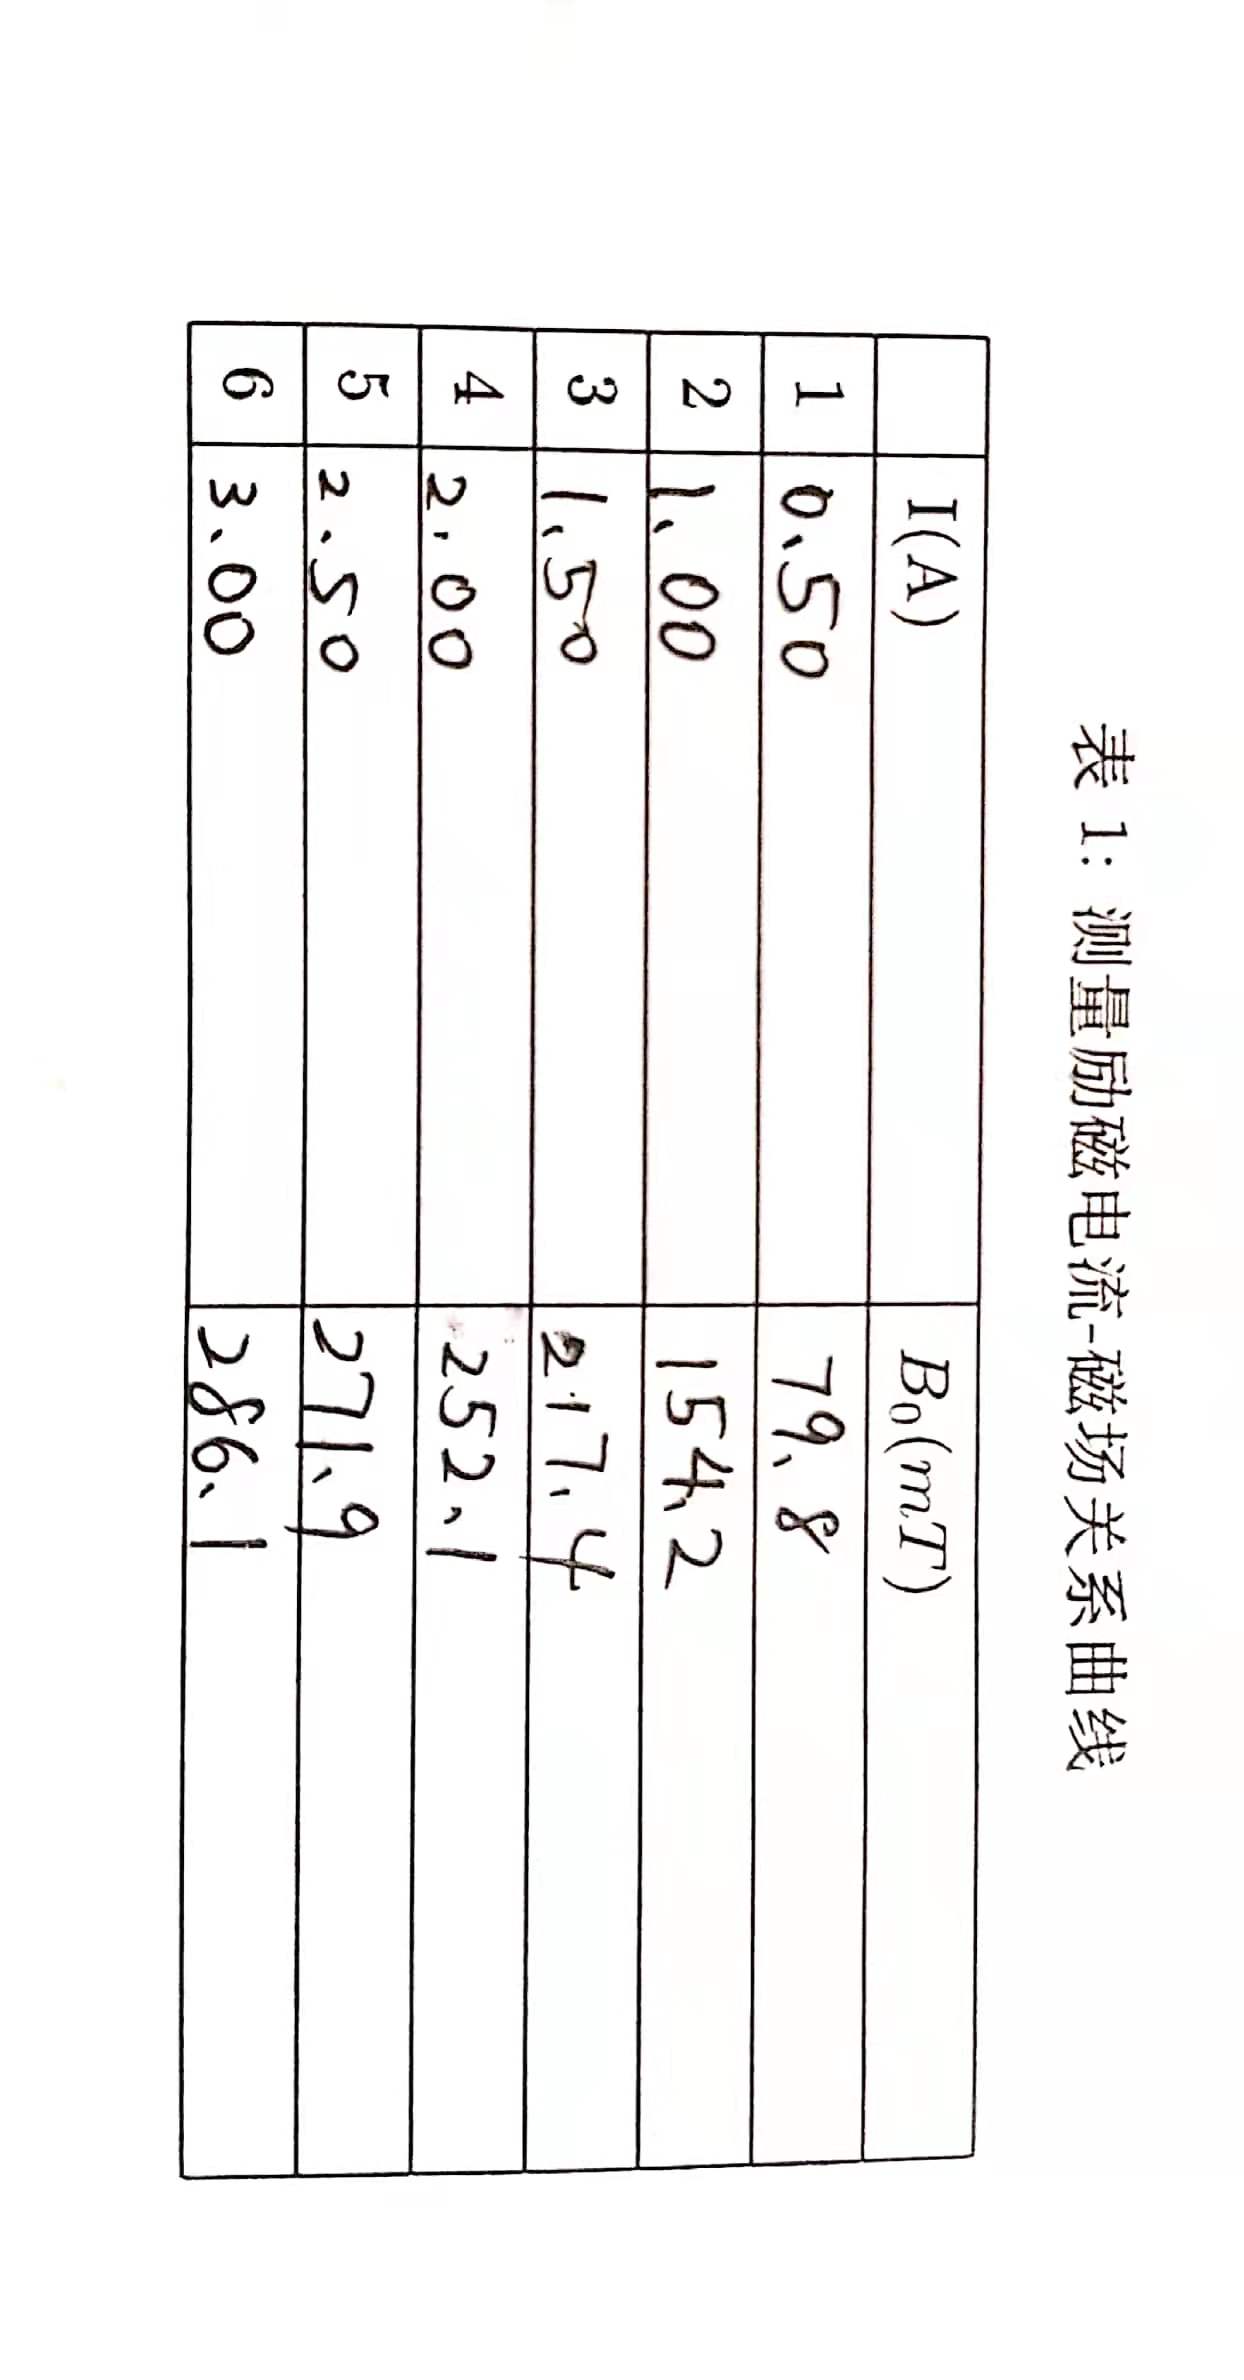 表 1: 测量励磁电流-磁场关系曲线
I(A) B₀(mT)
1 0.50 79.8
2 1.00 154.2
3 1.50 217.4
4 2.00 252.1
5 2.50 271.9
6 3.00 286.1